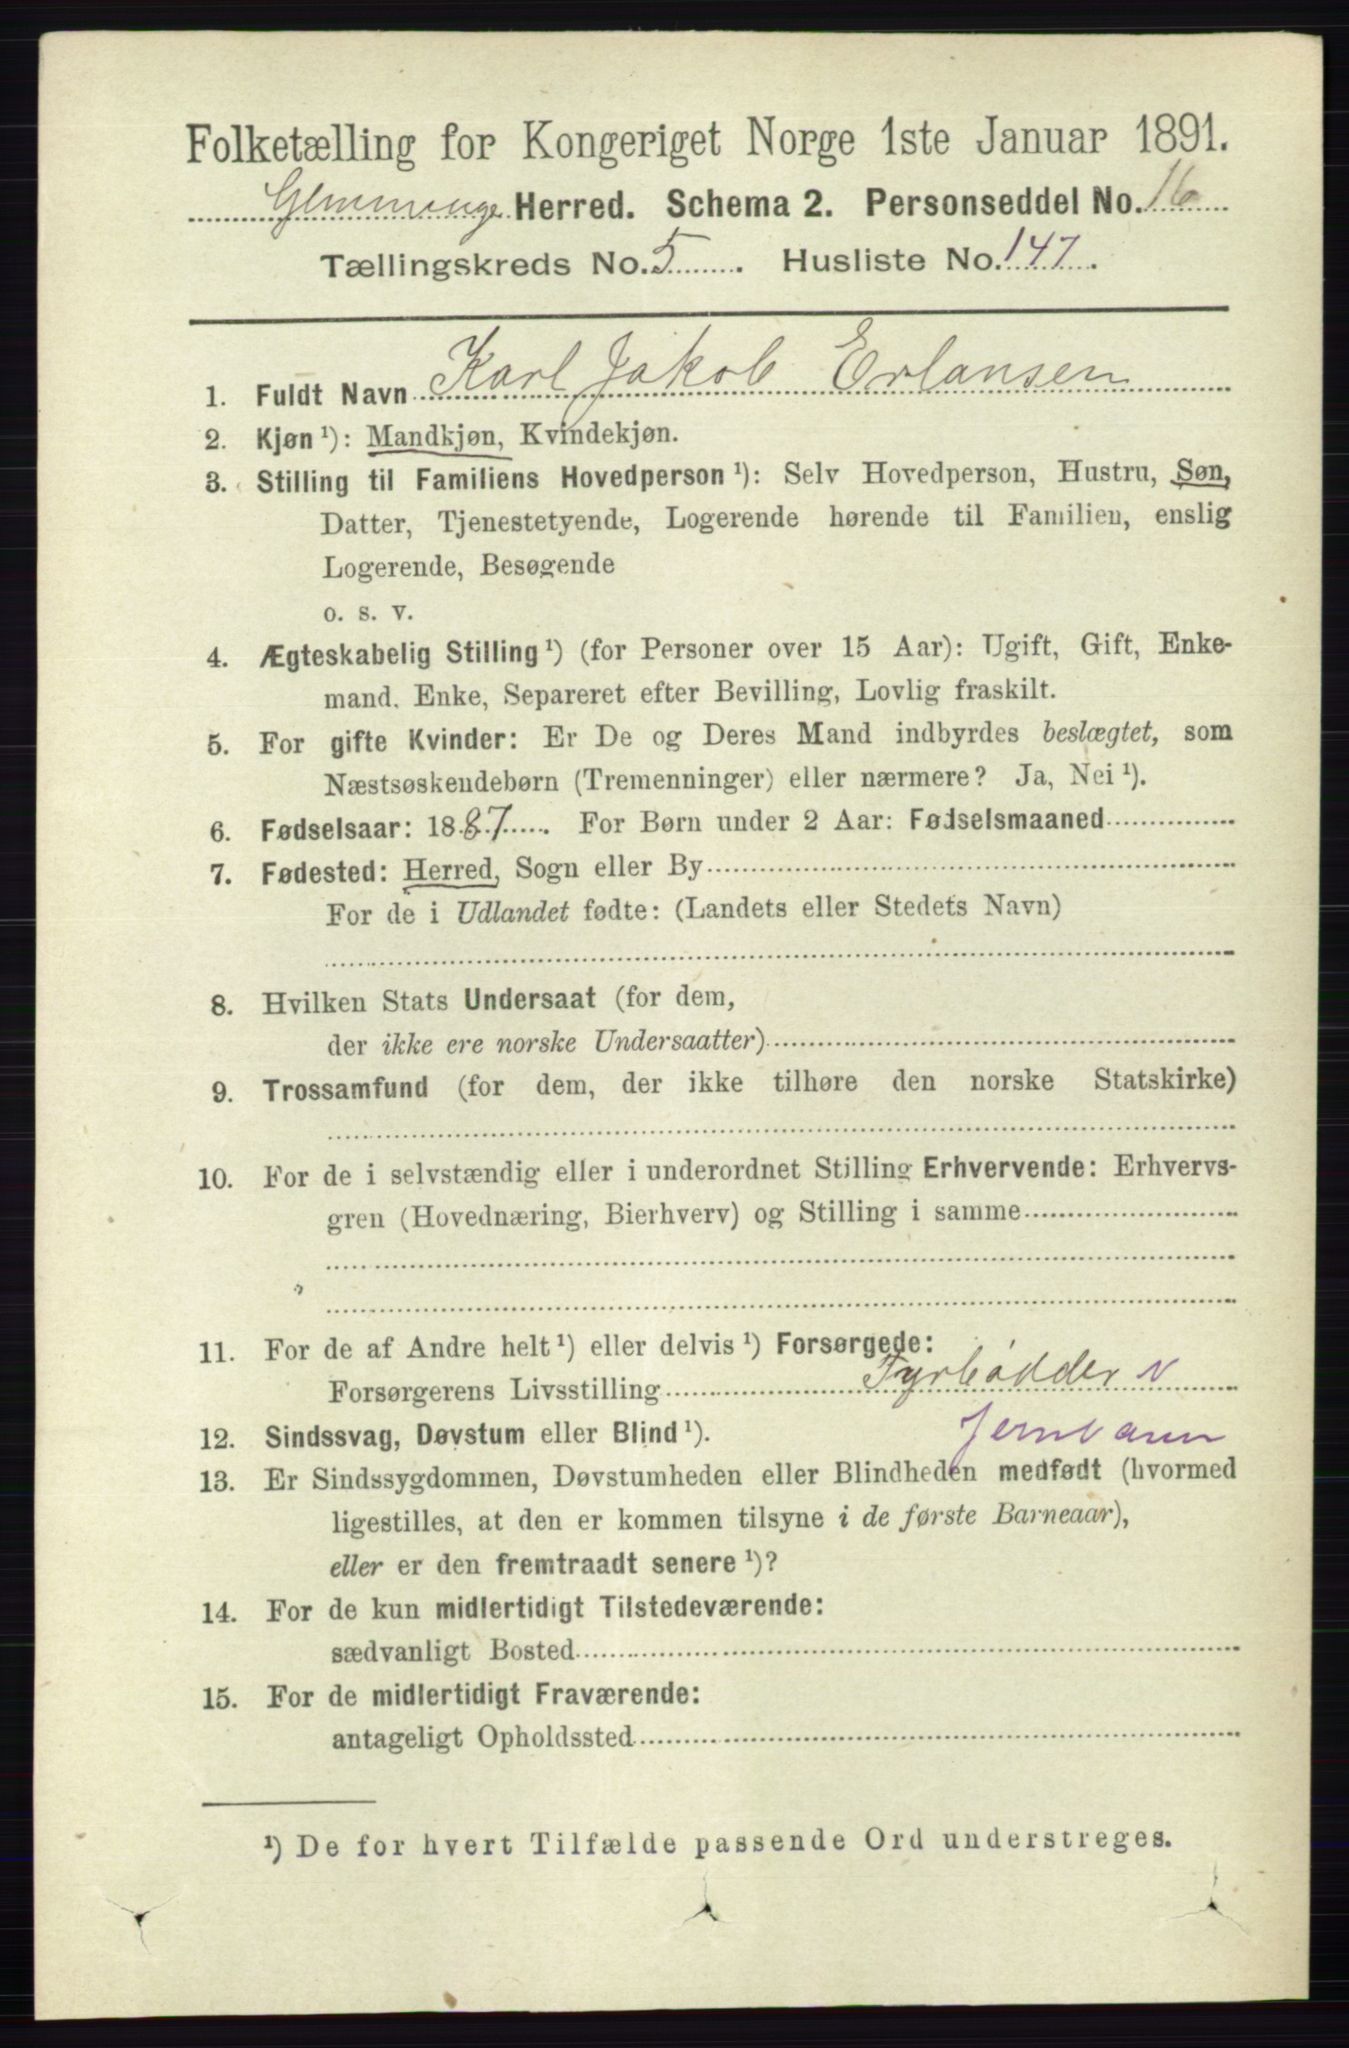 Folketælling for Kongeriget Norge 1ste Januar 1891.
Glemminge Herred. Schema 2. Personseddel No. 16
Tællingskreds No. 5. Husliste No. 147.
1. Fuldt Navn Karl Jakob Erlansen
2. Kjøn ¹): Mandkjøn, Kvindekjøn.
3. Stilling til Familiens Hovedperson ¹): Selv Hovedperson, Hustru, Søn,
Datter, Tjenestetyende, Logerende hørende til Familien, enslig
Logerende, Besøgende
o. s. v.
4. Ægteskabelig Stilling ¹) (for Personer over 15 Aar): Ugift, Gift, Enke-
mand. Enke, Separeret efter Bevilling, Lovlig fraskilt.
5. For gifte Kvinder: Er De og Deres Mand indbyrdes beslægtet, som
Næstsøskendebørn (Tremenninger) eller nærmere? Ja, Nei ¹).
6. Fødselsaar: 1887. For Børn under 2 Aar: Fødselsmaaned
7. Fødested: Herred, Sogn eller By
For de i Udlandet fødte: (Landets eller Stedets Navn)
8. Hvilken Stats Undersaat (for dem,
der ikke ere norske Undersaatter)
9. Trossamfund (for dem, der ikke tilhøre den norske Statskirke)
10. For de i selvstændig eller i underordnet Stilling Erhvervende: Erhvervs-
gren (Hovednæring, Bierhverv) og Stilling i samme
11. For de af Andre helt ¹) eller delvis ¹) Forsørgede:
Forsørgerens Livsstilling Fyrbödder v
12. Sindssvag, Døvstum eller Blind ¹). Jernbanen
13. Er Sindssygdommen, Døvstumheden eller Blindheden medfødt (hvormed
ligestilles, at den er kommen tilsyne i de første Barneaar),
eller er den fremtraadt senere ¹)?
14. For de kun midlertidigt Tilstedeværende:
sædvanligt Bosted
15. For de midlertidigt Fraværende:
antageligt Opholdssted
¹) De for hvert Tilfælde passende Ord understreges.